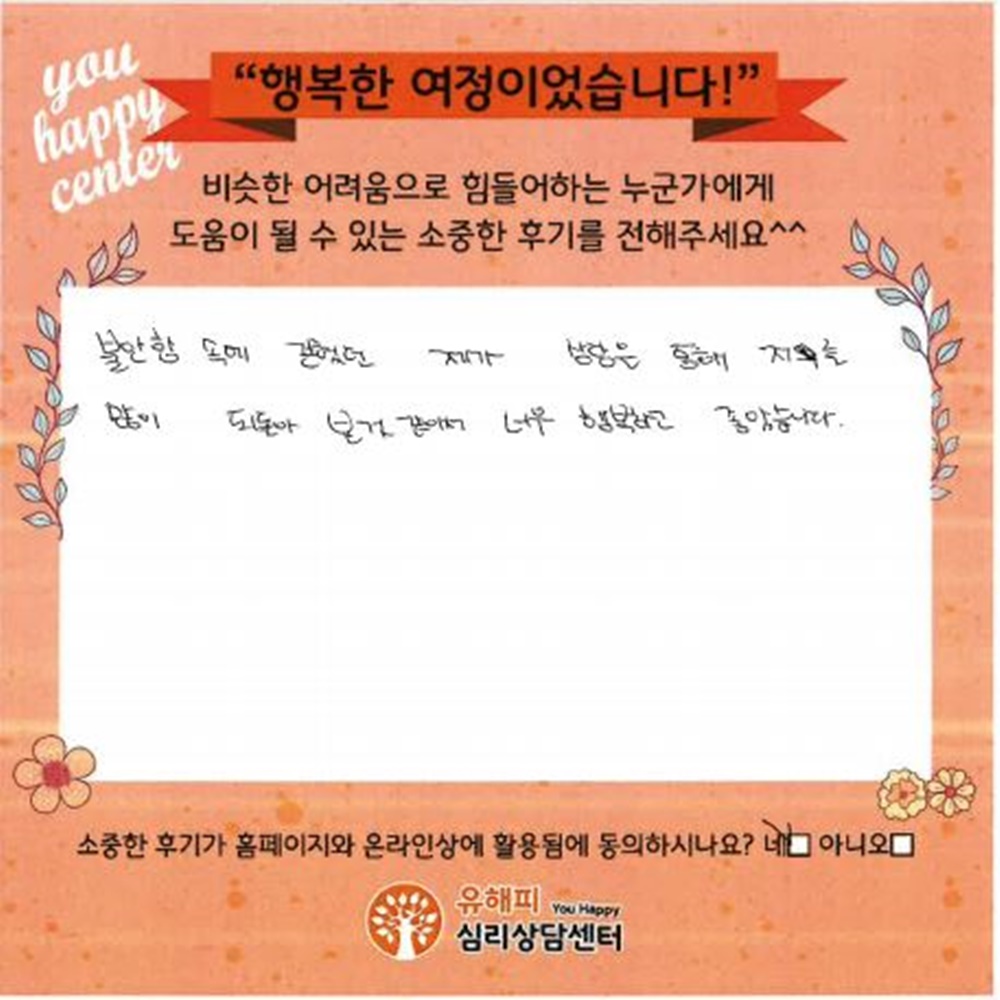 you
happy
center
“행복한 여정이었습니다!”
비슷한 어려움으로 힘들어하는 누군가에게
도움이 될 수 있는 소중한 후기를 전해주세요^^
불안함 속에 갇혔던 제가 상담은 통해
많이 되돌아 본것 같아서 너무 행복하고 좋았습니다.
소중한 후기가 홈페이지와 온라인상에 활용됨에 동의하시나요? 네 아니오
유해피 You Happy
심리상담센터